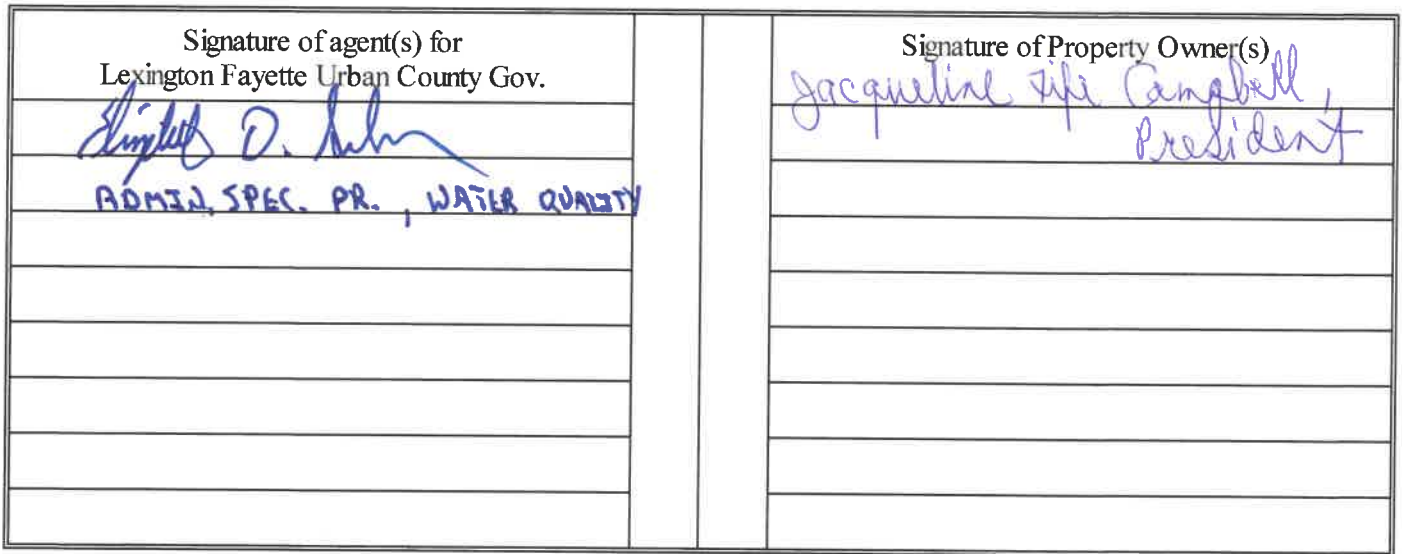 Signature of agent(s) for
Lexington Fayette Urban County Gov.
D.
ADMIN. SPEC. PR., WATER QUALITY
Signature of Property Owner(s)
Jacqueline Fife Campbell,
President